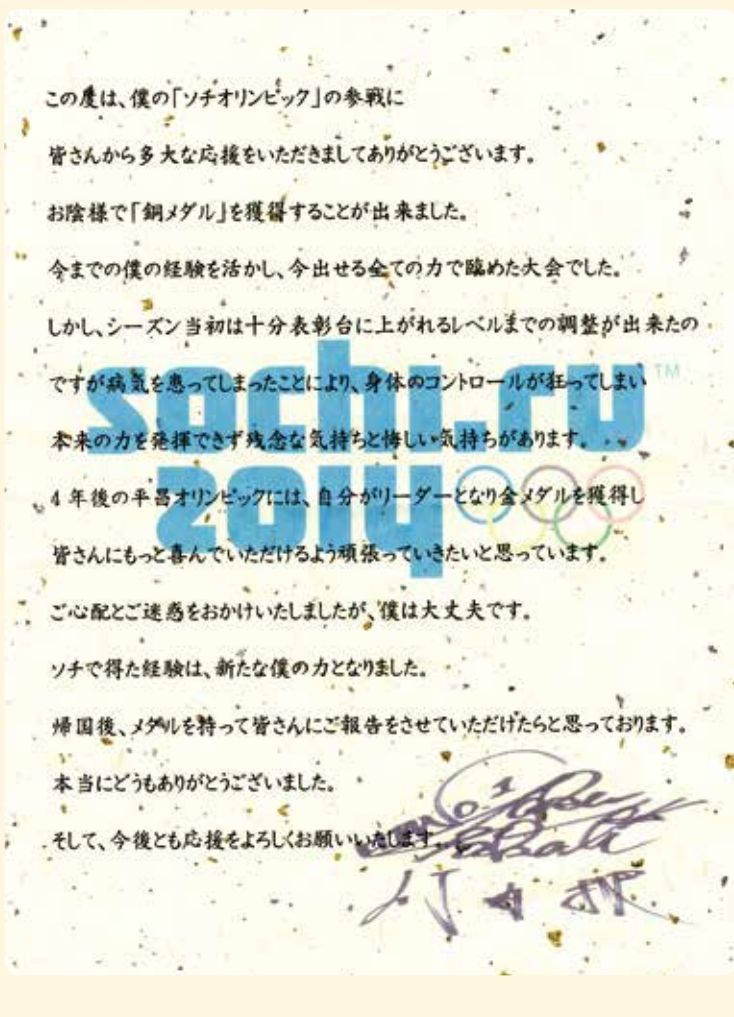 この度は、僕の「ソチオリンピック」の参戦に
皆さんから多大な応援をいただきましてありがとうございます。
お陰様で「銅メダル」を獲得することが出来ました。
今までの僕の経験を活かし、今出せる全ての力で臨めた大会でした。
しかし、シーズン当初は十分表彰台に上がれるレベルまでの調整が出来たの
ですが病気を患ってしまったことにより、身体のコントロールが狂ってしまい
sochi.ru TM
本来の力を発揮できず残念な気持ちと悔しい気持ちがあります。
4年後の平昌オリンピックには、自分がリーダーとなり金メダルを獲得し
2014
皆さんにもっと喜んでいただけるよう頑張っていきたいと思っています。
ご心配とご迷惑をおかけいたしましたが、僕は大丈夫です。
ソチで得た経験は、新たな僕の力となりました。
帰国後、メダルを持って皆さんにご報告をさせていただけたらと思っております。
本当にどうもありがとうございました。
そして、今後とも応援をよろしくお願いいたします。